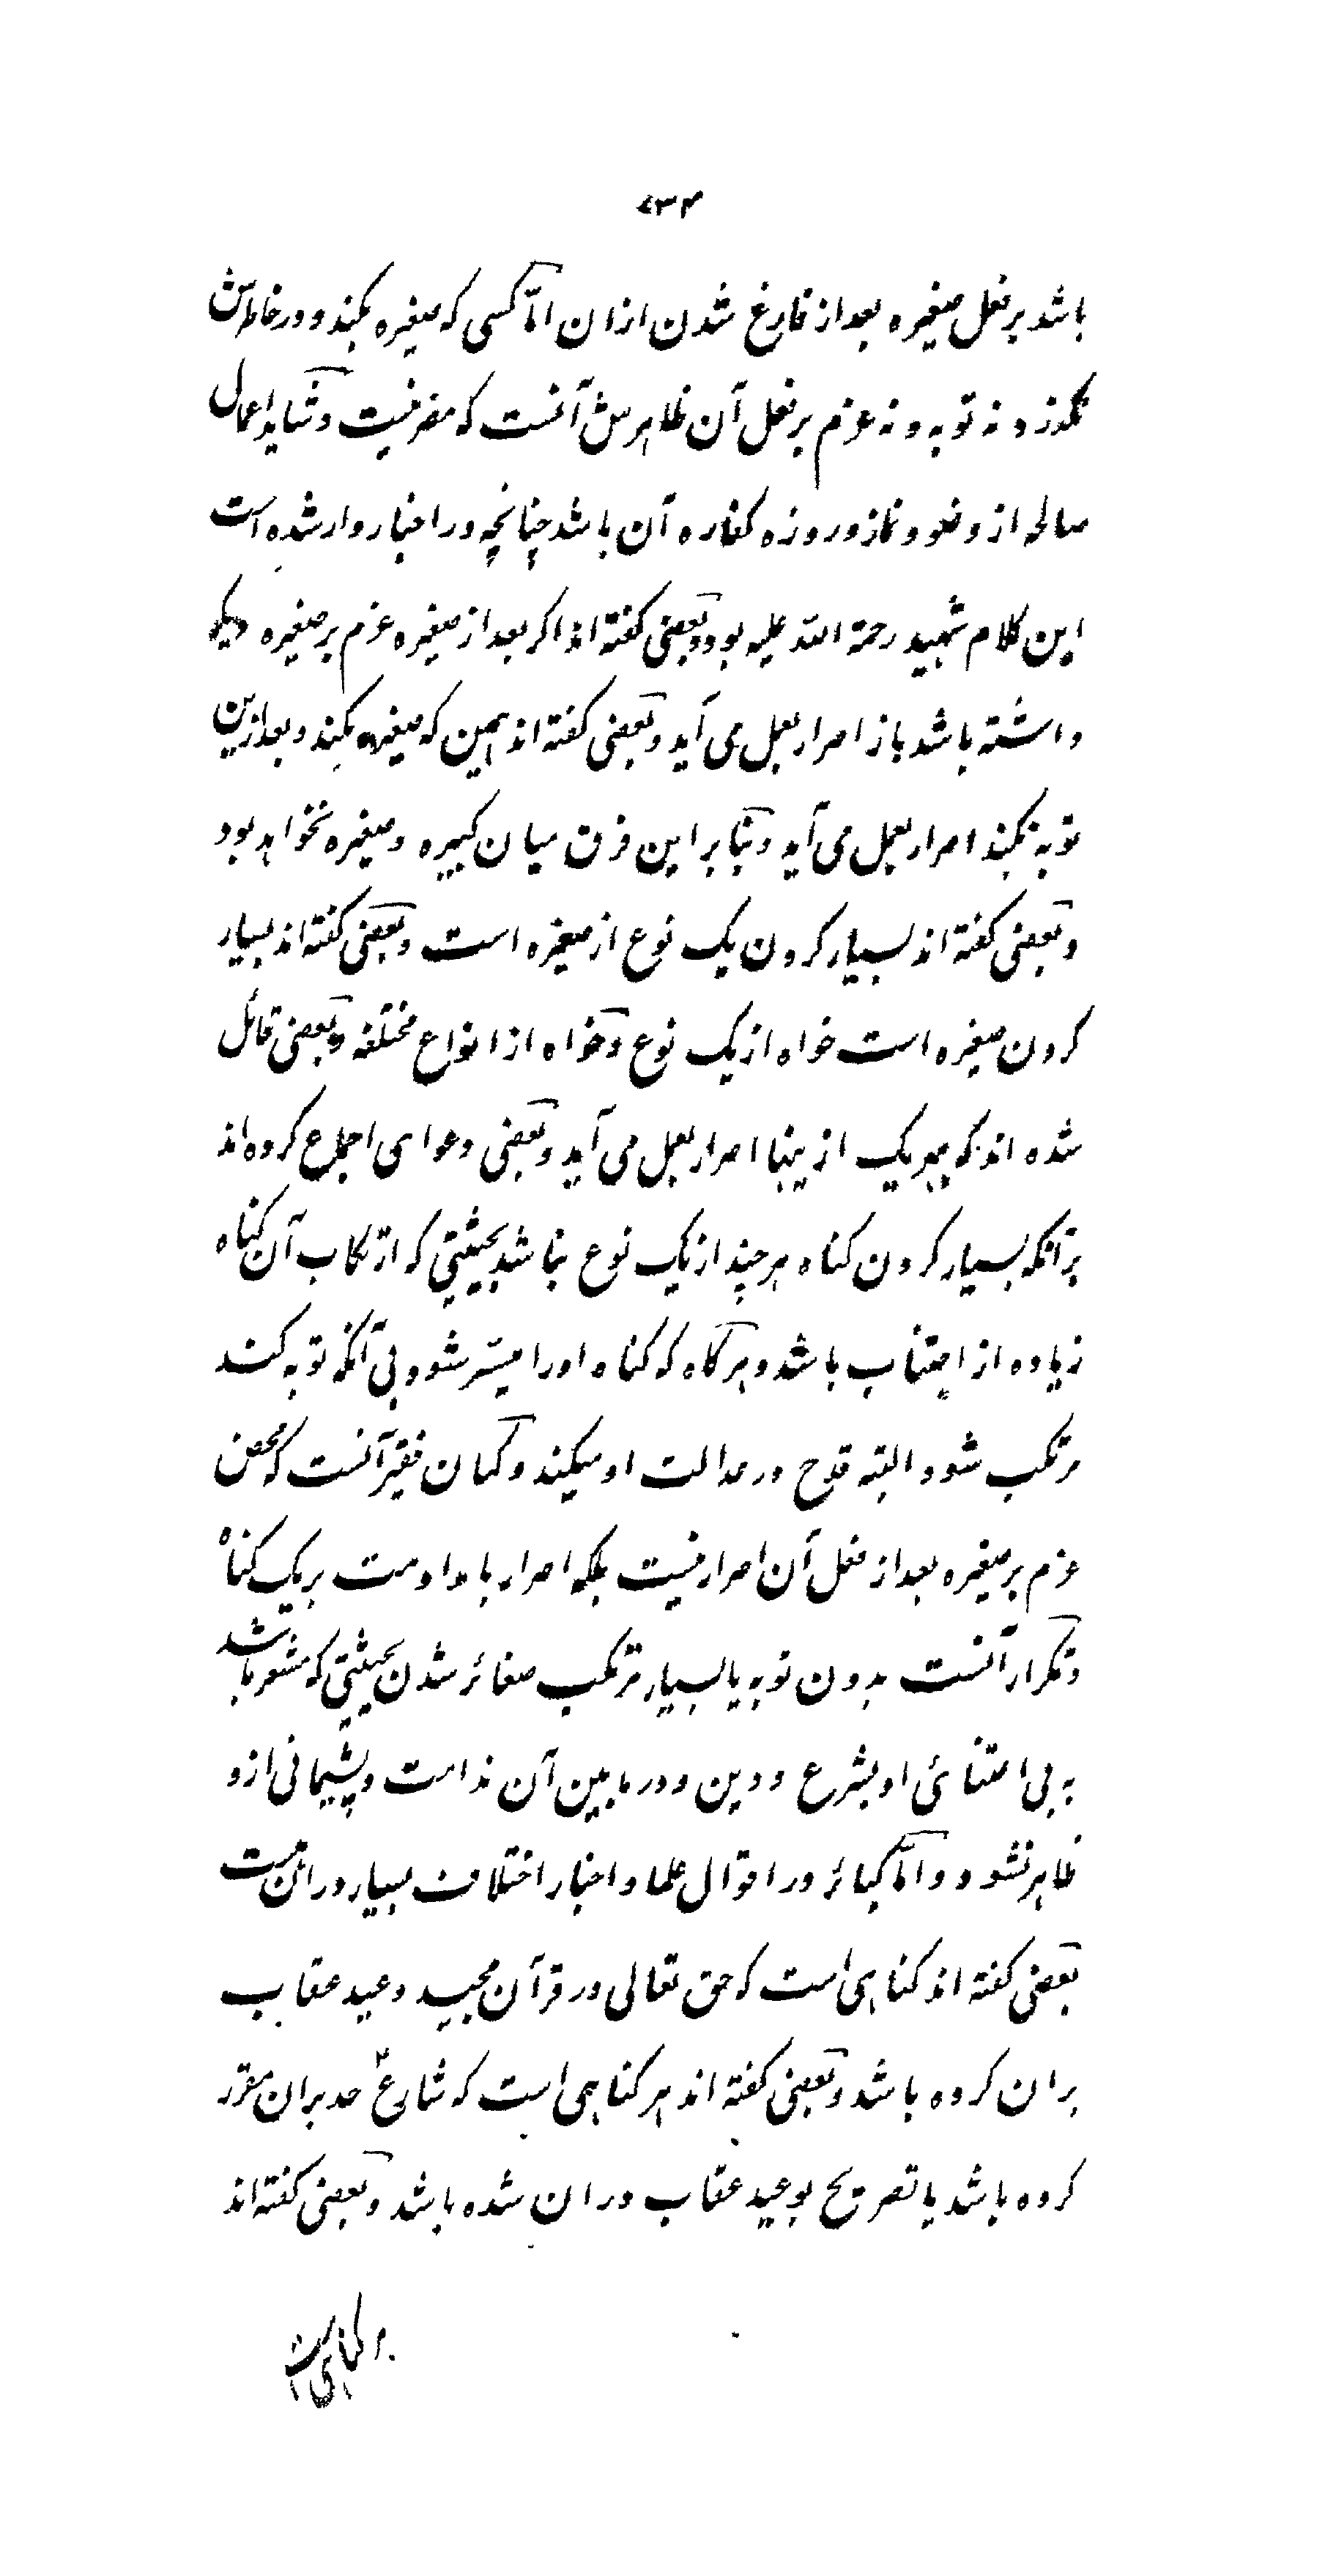 ۷۳۴
باشد بر فعل صغیره بعد از فارغ شدن ازان امّا کسی که صغیره بکند و در خاطرش
نگذرد نه توبه و نه عزم بر فعل آن ظاهرش آنست که مضر نیست و شاید اعمال
صالحه از وضو و نماز و روزه کفاره آن باشد چنانچه در اخبار وارد شده است
این کلام شهید رحمة الله علیه بود و بعضی گفته اند اگر بعد از صغیره عزم بر صغیره دیگر
داشته باشد باز اصرار بعمل می آید و بعضی گفته اند همین که صغیره بکند و بعد ازین
توبه نکند اصرار بعمل می آید و بنا بر این فرق میان کبیره و صغیره نخواهد بود
و بعضی گفته اند بسیار کردن یک نوع از صغیره است و بعضی گفته اند بسیار
کردن صغیره است خواه از یک نوع و خواه از انواع مختلفه و بعضی قائل
شده اند که بهر یک ازینها اصرار بعمل می آید و بعضی دعوای اجماع کرده اند
برآنکه بسیار کردن گناه هرچند از یک نوع نباشد بحیثیتی که ارتکاب آن گناه
زیاده از اجتناب باشد و هرگاه که گناه او را میسّر شود بی آنکه توبه کند
مرتکب شود البته قدح در عدالت او میکند و گمان فقیر آنست که محض
عزم بر صغیره بعد از فعل آن اصرار نیست بلکه اصرار یا مداومت بر یک گناه
و تکرار آنست بدون توبه یا بسیار مرتکب صغائر شدن بحیثیتی که مشعر باشد
به بی اعتنائی او بشرع و دین و در مابین آن ندامت و پشیمانی ازو
ظاهر نشود و امّا کبائر در اقوال علما و اخبار اختلاف بسیار در آن هست
بعضی گفته اند گناهی است که حق تعالی در قرآن مجید وعید عقاب
بران کرده باشد و بعضی گفته اند هر گناهی است که شارع حد بران مقرر
کرده باشد یا تصریح بوعید عقاب دران شده باشد و بعضی گفته اند
هر گناهی است